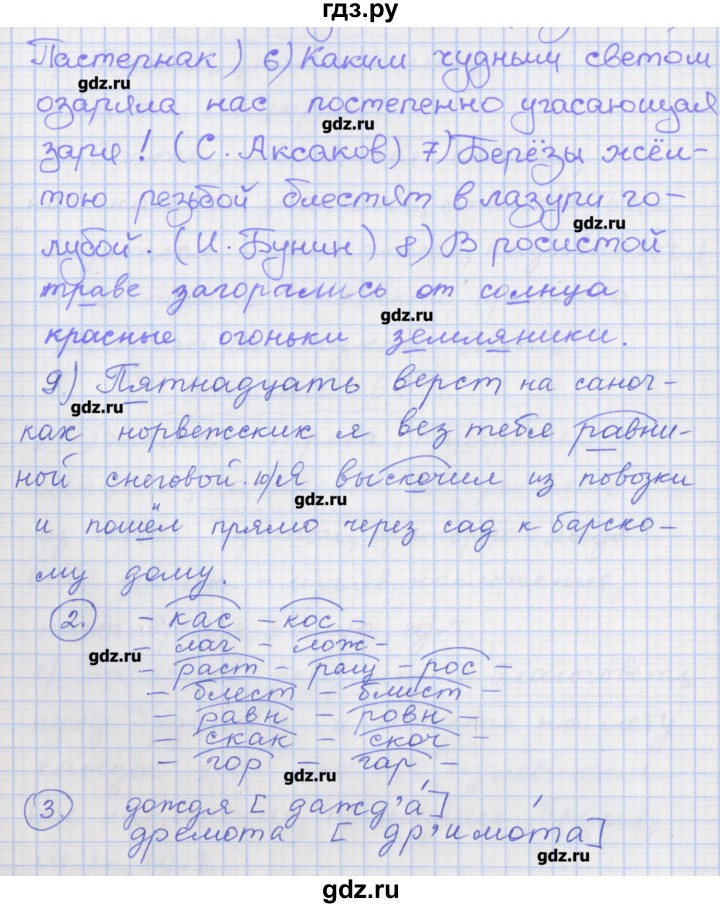 гдз.ру
Пастернак) 6) Каким чудным светом
gdz.ru
озаряла нас постепенно угасающая
gdz.ru
заря! (С. Аксаков) 7) Берёзы жёл-
тою резьбой блестят в лазури го-
gdz.ru
лубой. (И. Бунин) 8) В росистой
траве загорались от солнца
gdz.ru
красные огоньки земляники.
9) Пятнадцать верст на саноч-
gdz.ru
ках норвежских я вез тебя равни-
ной снеговой. 10) Я выскочил из повозки
gdz.ru
и пошёл прямо через сад к барско-
му дому.
2. - кас - кос -
gdz.ru
- лаг - лож -
- раст - ращ - рос -
- блест - блист -
- равн - ровн -
- скак - скоч -
- гор - гар -
gdz.ru
3. дождя [дажд'а́]
дремота [др'имо́та]
gdz.ru
gdz.ru